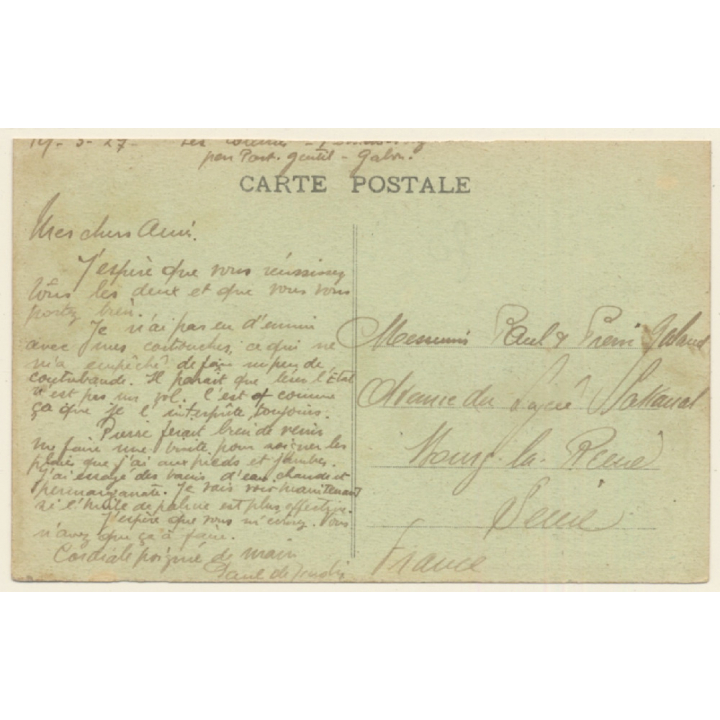 19-3-27-
près Port. Gentil - Gabon.
CARTE POSTALE
Mes chers Amis.
J'espère que vous réussissez
tous les deux et que vous vous
portez bien.
Je n'ai pas eu d'ennui
avec mes cartouches, ce qui ne
m'a empêché de faire un peu de
contrebande. Il parait que l'Etat
n'est pas un vol. C'est comme
ça que je l'interprète toujours.
Pierre ferait bien de venir
me faire une visite pour soigner les
plaies que j'ai aux pieds et jambes.
J'ai essayé des bains d'eau chaude et
permanganate. Je vais voir maintenant
si l'huile de palme est plus effective.
J'espère que vous m'. Vous
n'avez que ça à faire.
Cordiale poignée de main
Paul de
Messieurs Paul & Pierre
Avenue du Lycée Lakanal
Bourg-la-Reine
Seine
France